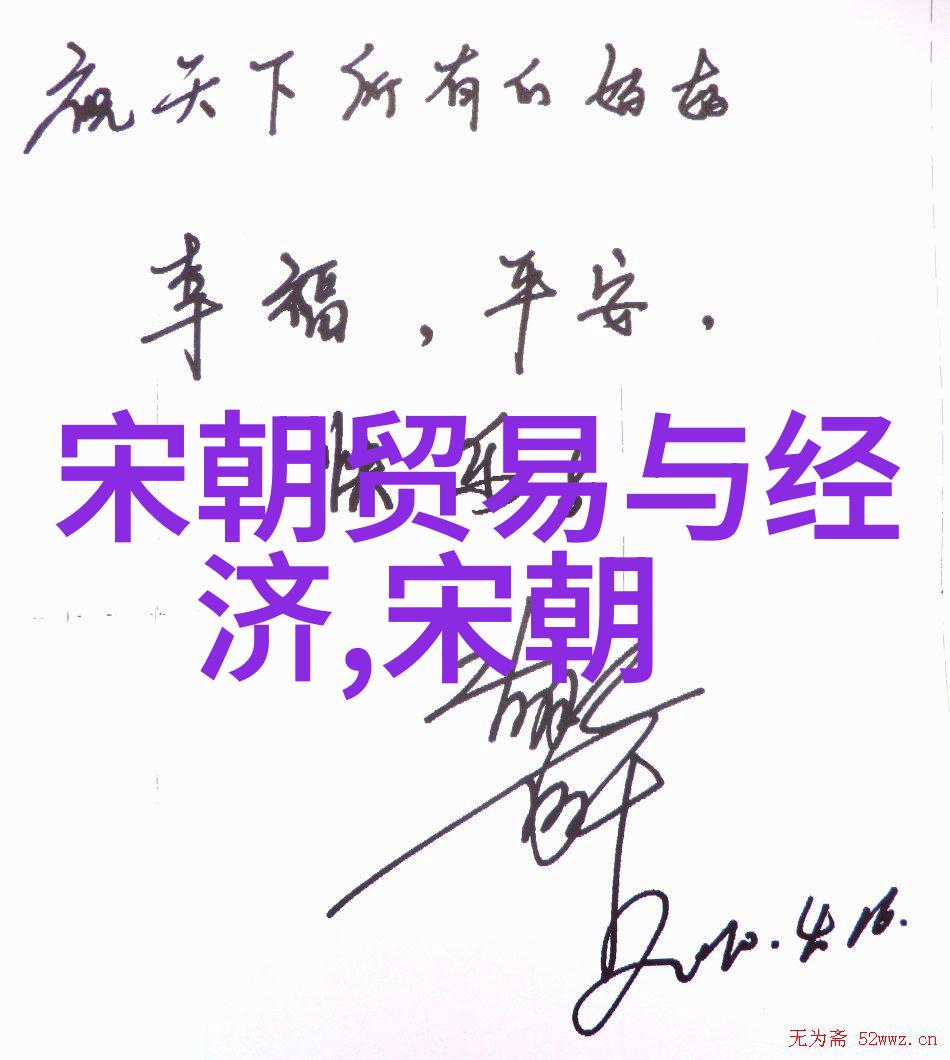 祝天下所有的妈妈
幸福，平安，
快乐！
宋朝贸易与经
济,宋朝
2010.4.16.
无为斋 52wwz.cn